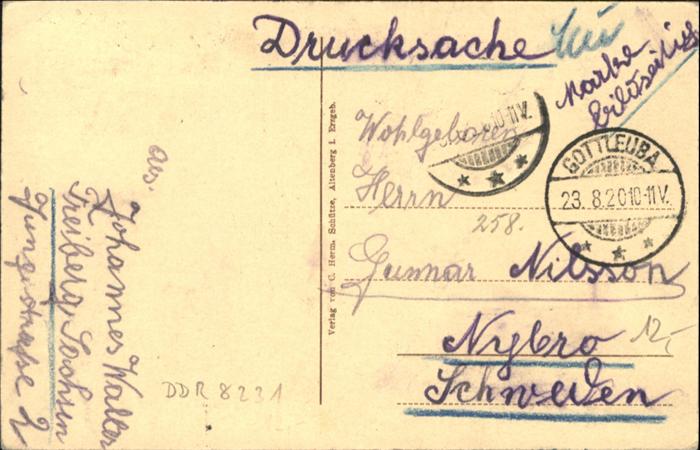 Drucksache
Marke
bildseitig
Verlag von C. Herm. Schütze, Altenberg i. Erzgeb.
10-11V.
GOTTLEUBA
23. 8.20 10-11 V.
Wohlgeboren
Herrn
258.
Gunnar Nilsson
Nybro
12,-
Schweden
Abs.
Johannes Walter
Freiberg, Sachsen
2
DDR 8231